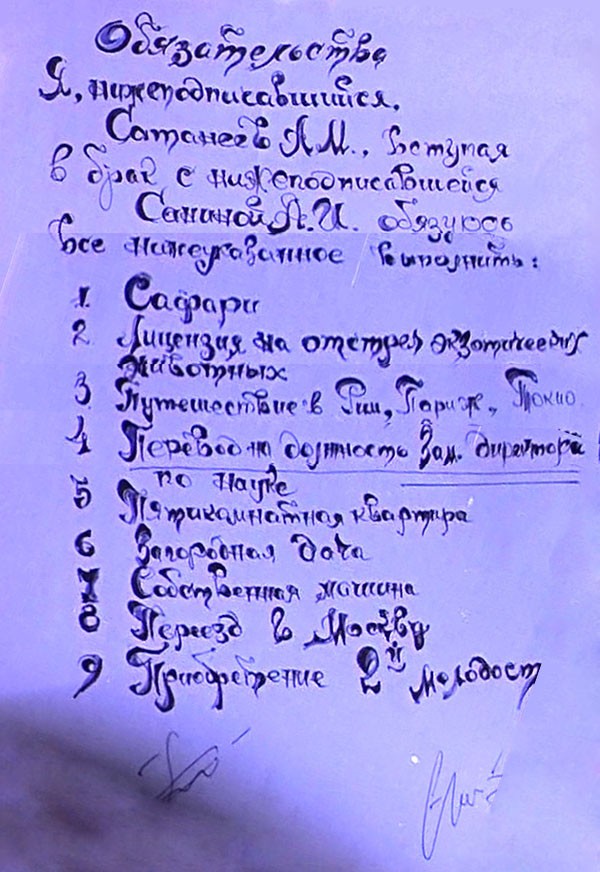 Обязательства
Я, нижеподписавшийся,
Сатанеев А.М., вступая
в брак с нижеподписавшейся
Саниной А.И. обязуюсь
все нижеуказанное выполнить:
1 Сафари
2 Лицензия на отстрел экзотических
животных
3 Путешествие в Рим, Париж, Токио
4 Перевод на должность Зам. директора
по науке
5 Пятикомнатная квартира
6 Загородная дача
7 Собственная машина
8 Переезд в Москву
9 Приобретение 2й молодост